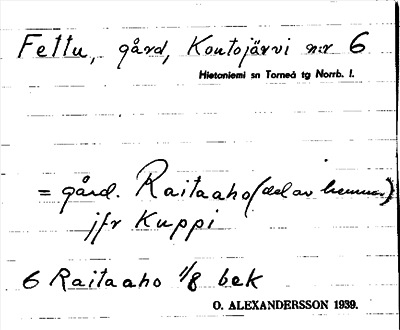 Fettu, gård, Koutojärvi n:r 6
Hietaniemi sn Torneå tg Norrb. l.
= gård. Raitaaho (del av hemman)
jfr Kuppi
6 Raitaaho 1/8 bek
O. ALEXANDERSSON 1939.